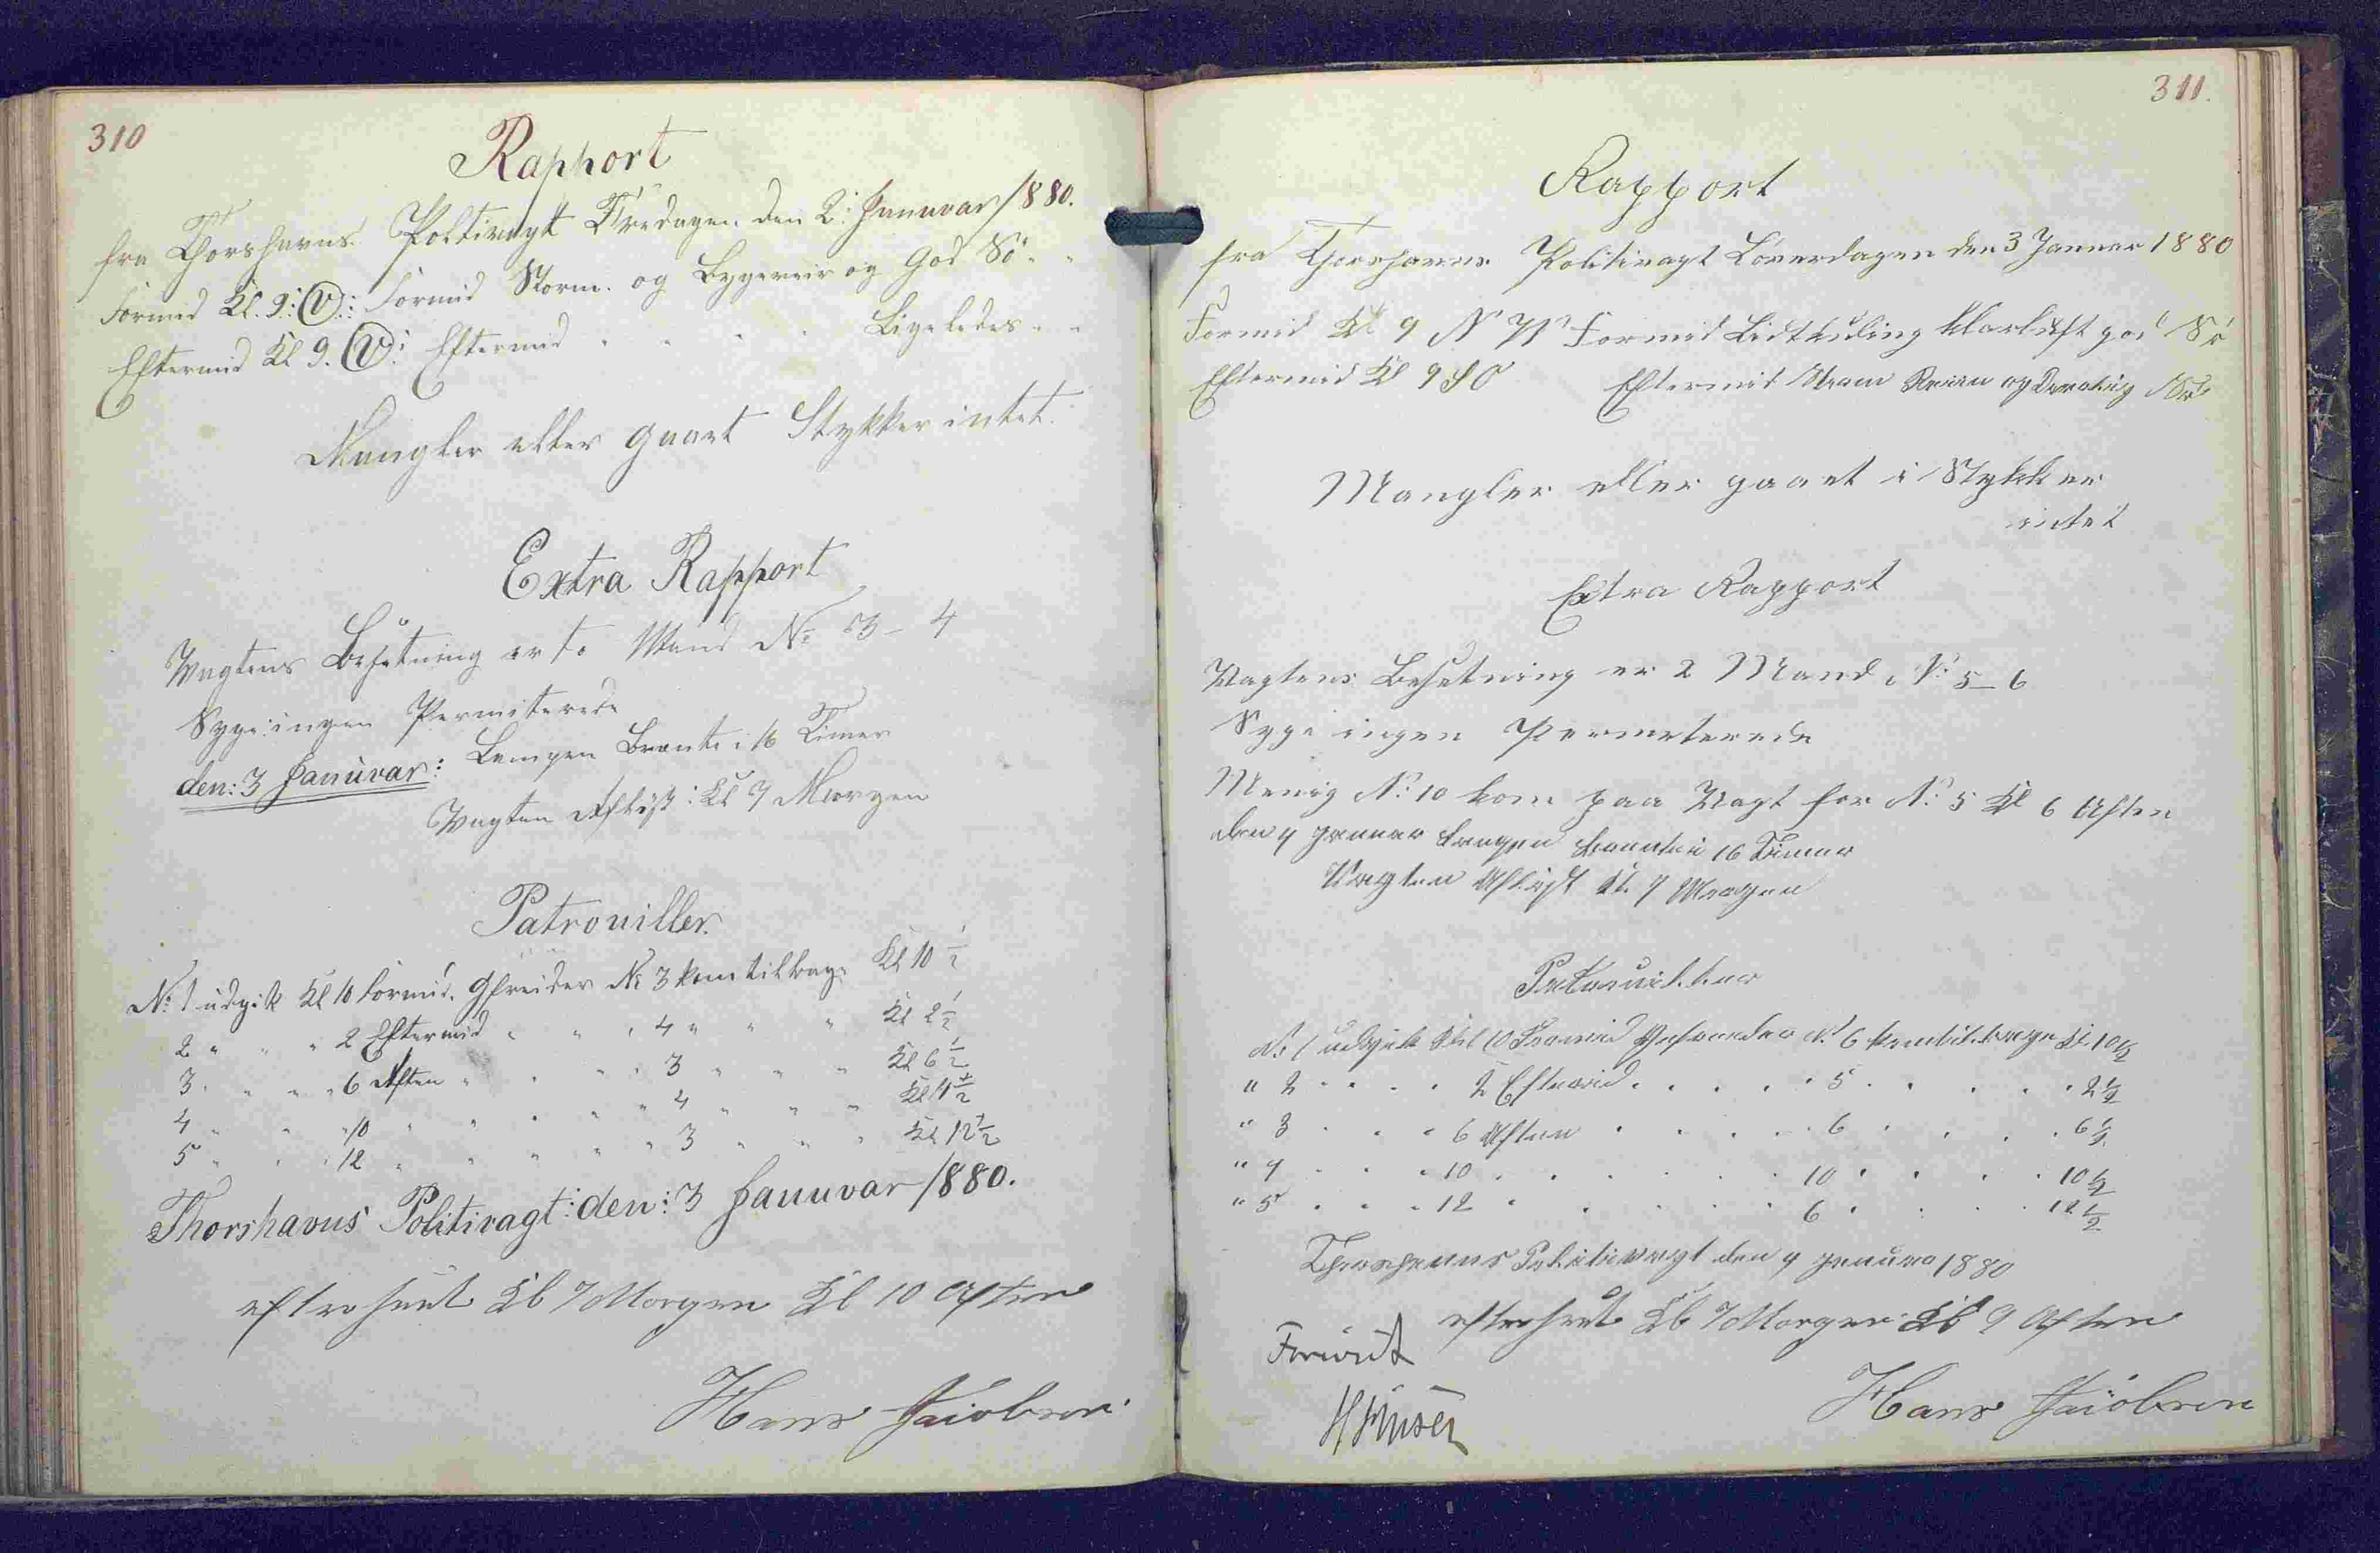 310
Rapport
fra Thorshavns Politivagt Fredagen den 2: Januvar 1880.
Formid Kl. 9: (V): Formid Storm. og Bygeveir og God Sö " "
Eftermid Kl 9. (V): Eftermid " " " " Ligeledes " "
Mangler eller gaaet Stykker intet.
Extra Rapport
Vagtens Besetning er to Mand No 3 - 4
Syge: ingen Permiterede
den: 3 Januvar: Lampen Brænte i 16 Timer
Vagten Aflöst: Kl 7 Morgen
Patrouiller.
No 1 udgik Kl 10 Formid. Gefreider No 3 kom tilbage Kl 10 1/2
2 " " " 2 Eftermid " " " 4 " " " Kl 2 1/2
3 " " " 6 Aften " " " " 3 " " " Kl 6 1/2
4 " " " 10 " " " " " 4 " " " Kl 1/2
5 " " " 12 " " " " " 3 " " " Kl 12 1/2
Thorshavns Politivagt: den: 3 Januvar 1880.
efterseet Kl 7 Morgen Kl 10 Aften
Hans Jacobsen.
311.
Rapport
fra Thorshavns Politivagt Löverdagen den 3 Januar 1880
Formid Kl 9 N W Formid Lidt kuling klarluft god Sö
Eftermid Kl 9 S O Eftermid Storm og Sö
Mangler eller gaaet i Stykker
intet
Extra Rapport
Vagtens Besetning er 2 Mand, No 5 - 6
Syge ingen Permeterede
Menig No 10 kom paa Vagt for No 5 Kl 6 Aften
den 4 Januar Lampen brænte i 16 Timer
Vagten Aflöst Kl. 7 Morgen
Patrouiller
No 1 udgik Kl 10 Formid Gefreider No 6 kom tilbage Kl 10 1/2
" 2 " " " 2 Eftermid " " " " 5 " " " " 2 1/2
" 3 " " " 6 Aften " " " " 6 " " " " 6 1/2
" 4 " " " 10 " " " " " 10 " " " " 10 1/2
" 5 " " " 12 " " " " " 6 " " " " 12 1/2
Thorshavns Politivagt den 4 Januar 1880
efterseet Kl 7 Morgen Kl 9 Aften
Forevist
Hans Jacobsen